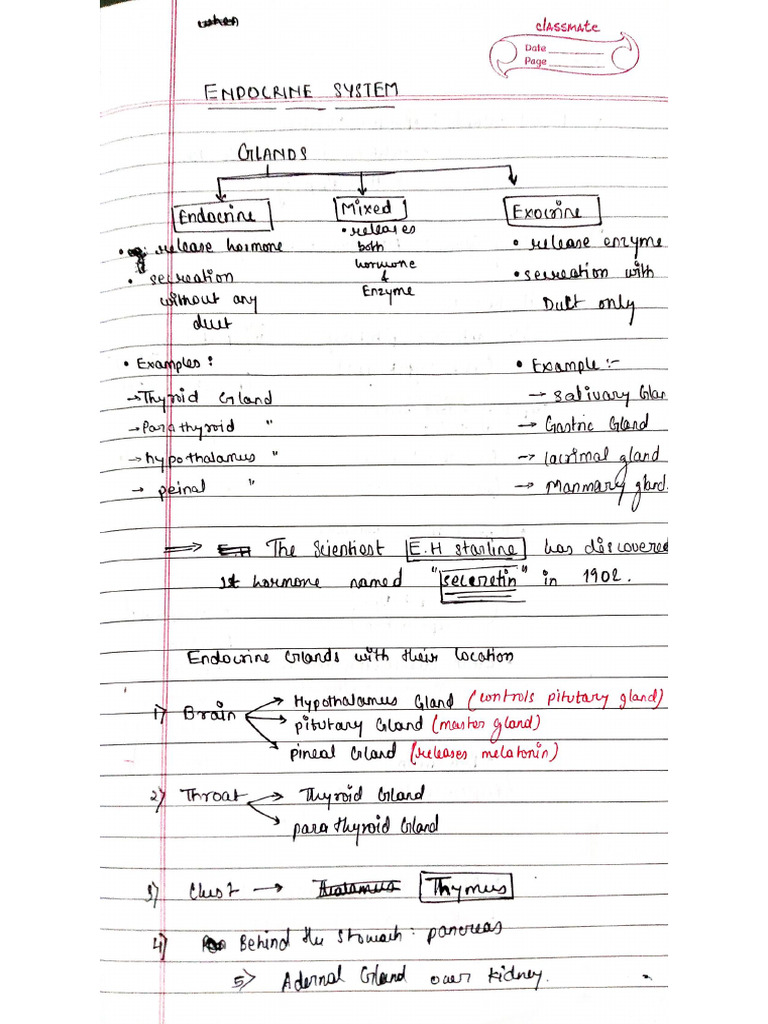 when
classmate
Date
Page
ENDOCRINE SYSTEM
GLANDS
Endocrine Mixed Exocrine
• release hormone
• secreation
without any
duct
• releases
both
hormone
&
Enzyme
• release enzyme
• secreation with
Duct only
• Examples :
→ Thyroid Gland
→ Parathyroid "
→ hypothalamus "
→ peinal "
• Example :-
→ Salivary Glan
→ Gastric Gland
→ lacrimal gland
→ Manmary gland.
⇒ E.H The Scientiest E.H starline has discovered
1st hormone named "secretin" in 1902.
Endocrine Glands with their location
1) Brain → Hypothalamus Gland (controls pitutary gland)
→ pitutary Gland (master gland)
→ pineal Gland (releases melatonin)
2) Throat → Thyroid Gland
→ para thyroid Gland
3) Chest → Thymus
4) Behind the stomach : pancreas
5) Adernal Gland over kidney.